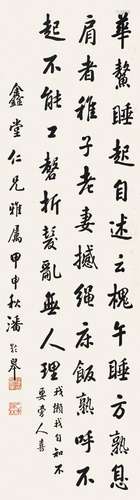 華鰲睡起自述云槐午睡方熟息
肩者稚子老妻撼繩床飯熟呼不
起不能工磬折髮亂無人理
我懶我自知不
要旁人喜
鑫堂仁兄雅屬甲申秋潘齡皋